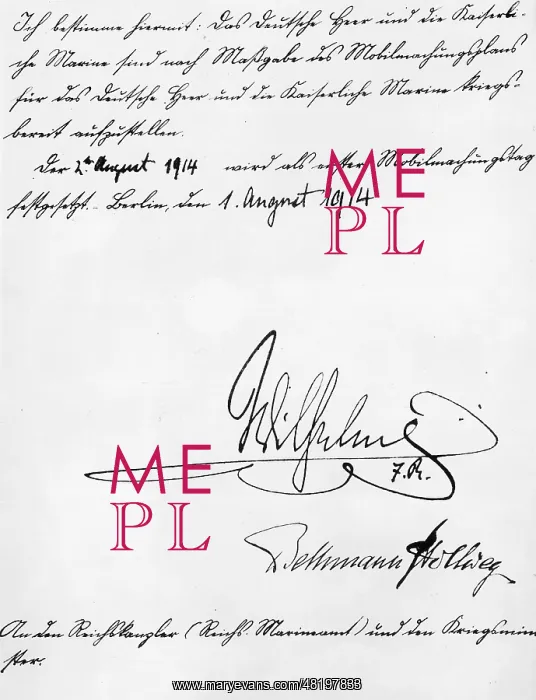 Ich bestimme hiermit: Das Deutsche Heer und die Kaiserli-
che Marine sind nach Maßgabe des Mobilmachungsplans
für das Deutsche Heer und die Kaiserliche Marine kriegs-
bereit aufzustellen.
Der 2te August 1914 wird als erster Mobilmachungstag
festgesetzt. Berlin, den 1. August 1914
ME
PL
Wilhelm
I.R.
ME
PL
Bethmann Hollweg
An den Reichskanzler (Reichs-Marineamt) und den Kriegsmini
ster.
www.maryevans.com/48197883